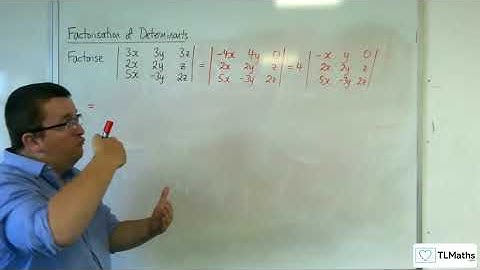 Factorisation of Determinants
Factorise | 3x 3y 3z | = | -4x 4y 0 | = 4 | -x y 0 |
| 2x 2y z | | 2x 2y z | | 2x 2y z |
| 5x -3y 2z | | 5x -3y 2z | | 5x -3y 2z |
=
TLMaths